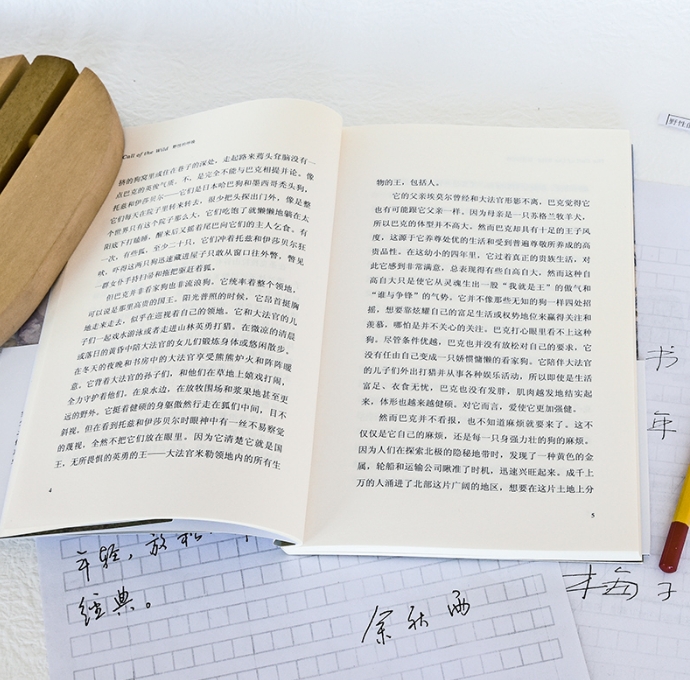 Call of the Wild 野性的呼唤
挤的狗窝里或住在巷子的深处，走起路来蔫头耷脑没有一
点巴克的英俊气质。不，是完全不能与巴克相提并论。像
托兹和伊莎贝尔——它们是日本哈巴狗和墨西哥秃头狗，
它们每天在院子里转来转去，很少把头探出门外，像是整
个世界只有这个院子那么大，它们吃饱了就懒懒地躺在太
阳底下打瞌睡，醒来后又摇着尾巴向它们的主人乞食。有
一次，有些狐，至少二十只，它们冲着托兹和伊莎贝尔狂
吠，吓得这两只狗迅速藏进屋子只敢从窗口往外瞥，瞥见
一群女仆手持扫帚和拖把驱赶着狐。
但巴克并非看家狗也非流浪狗。它统率着整个领地，
可以说是那里高贵的国王。阳光普照的时候，它昂首挺胸
地走来走去，似乎在巡视着自己的领地。它和大法官的儿
子们一起戏水游泳或者走进山林英勇打猎。在微凉的清晨
或落日的黄昏中陪大法官的女儿们锻炼身体或悠闲散步。
在冬天的夜晚和书房中的大法官享受熊熊炉火和阵阵暖
意。它背着大法官的孙子们，和他们在草地上嬉戏打闹，
全力守护着他们，在泉水边，在放牧围场和浆果地甚至更
远的野外。它挺着健硕的身躯傲然行走在狐们中间，目不
斜视。但在看到托兹和伊莎贝尔时眼神中有一丝不易察觉
的蔑视，全然不把它们放在眼里。因为它清楚它就是国
王，无所畏惧的英勇的王——大法官米勒领地内的所有生
4
物的王，包括人。
它的父亲埃莫尔曾经和大法官形影不离，巴克觉得它
也有可能跟它父亲一样。因为母亲是一只苏格兰牧羊犬，
所以巴克的体型并不高大。然而巴克却具有十足的王子风
度，这源于它养尊处优的生活和受到普遍尊敬所养成的高
贵品性。在这幼小的四年里，它过着真正的贵族生活，对
此它感到非常满意，总表现得有些自高自大。然而这种自
高自大只是使它从灵魂生出一股“我就是王”的傲气和
“谁与争锋”的气势。它并不像那些无知的狗一样四处招
摇，想要靠炫耀自己的富足生活或权势地位来赢得关注和
羡慕。哪怕是并不关心的关注。巴克打心眼里看不上这种
狗。尽管条件优越，巴克也并没有放松对自己的要求，它
没有任由自己变成一只娇惯慵懒的看家狗。它陪伴大法官
的儿子们外出打猎并从事各种娱乐活动，所以即使是生活
富足、衣食无忧，巴克也没有发胖，肌肉越发地结实起
来，体形也越来越健硕。对它而言，爱使它更加强健。
然而巴克并不看报，也不知道麻烦就要来了。这不
仅仅是它自己的麻烦，还是每一只身强力壮的狗的麻烦。
因为人们在探索北极的隐秘地带时，发现了一种黄色的金
属，轮船和运输公司瞅准了时机，迅速兴旺起来。成千上
万的人涌进了北部这片广阔的地区，想要在这片土地上分
5
野性的
书
年
年轻，放松
经典。
余秋雨
梅子